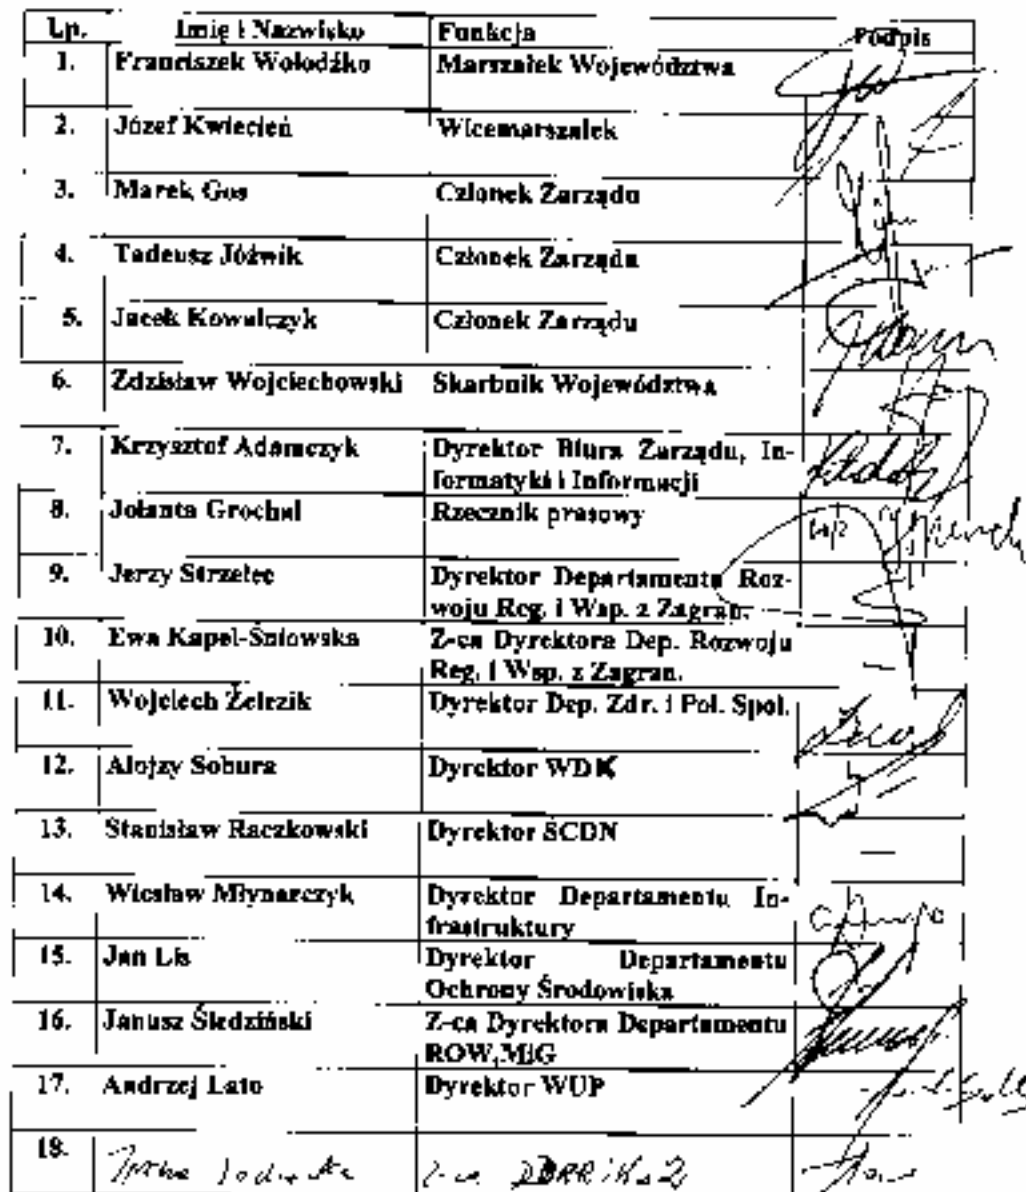 Lp. Imię i Nazwisko Funkcja Podpis
1. Franciszek Wołodźko Marszałek Województwa
2. Józef Kwiecień Wicemarszałek
3. Marek Gos Członek Zarządu
4. Tadeusz Jóźwik Członek Zarządu
5. Jacek Kowalczyk Członek Zarządu
6. Zdzisław Wojciechowski Skarbnik Województwa
7. Krzysztof Adamczyk Dyrektor Biura Zarządu, In-
formatyki i Informacji
8. Jolanta Grochal Rzecznik prasowy
9. Jerzy Strzelec Dyrektor Departamentu Roz-
woju Reg. i Wsp. z Zagran.
10. Ewa Kapel-Śniowska Z-ca Dyrektora Dep. Rozwoju
Reg. i Wsp. z Zagran.
11. Wojciech Żelezik Dyrektor Dep. Zdr. i Pol. Społ.
12. Alojzy Sobura Dyrektor WDK
13. Stanisław Raczkowski Dyrektor SCDN
14. Wiesław Młynarczyk Dyrektor Departamentu In-
frastruktury
15. Jan Lis Dyrektor Departamentu
Ochrony Środowiska
16. Janusz Śledziński Z-ca Dyrektora Departamentu
ROW,MiG
17. Andrzej Lato Dyrektor WUP
18.